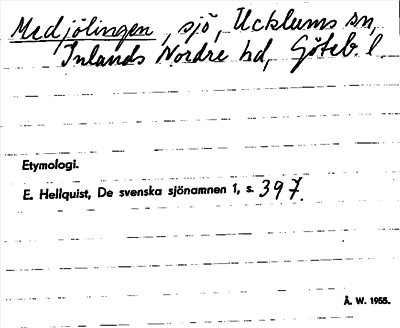 Medjölingen, sjö, Ucklums sn,
Inlands Nordre hd, Göteb. l.
Etymologi.
E. Hellquist, De svenska sjönamnen 1, s. 397.
Å. W. 1955.